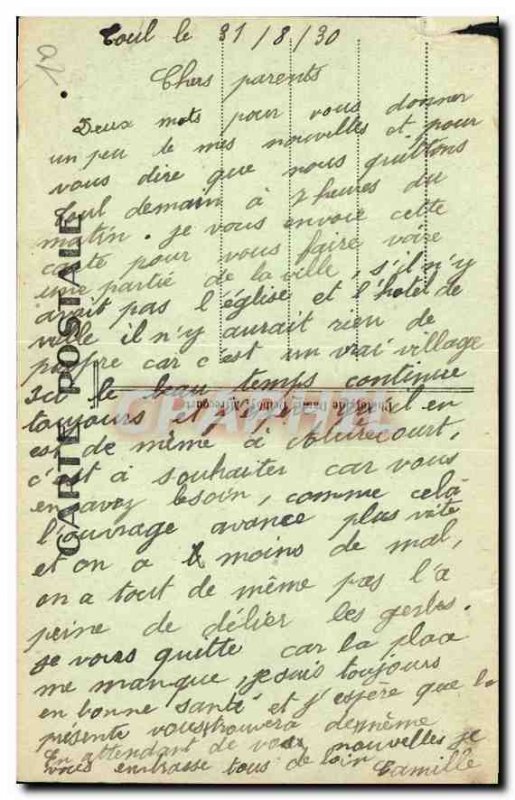 Toul le 31/8/30
Chers parents
Deux mots pour vous donner
un peu de mes nouvelles et pour
vous dire que nous quittons
Toul demain à 7 heures du
matin. je vous envoie cette
carte pour vous faire voire
une partie de la ville, s'il n'y
avait pas l'église et l'hotel de
ville il n'y aurait rien de
propre car c'est un vrai village
ici le beau temps continue
toujours et il en
est de même à
c'est à souhaiter car vous
en avez besoin, comme cela
l'ouvrage avance plus vite
et on a moins de mal,
on a tout de même pas l'a
peine de délier les gerbes.
je vous quitte car la place
me manque, je suis toujours
en bonne santé et j'espère que la
présente vous trouvera de même
En attendant de vos nouvelles je
vous embrasse tous de loin Camille
CARTE POSTALE